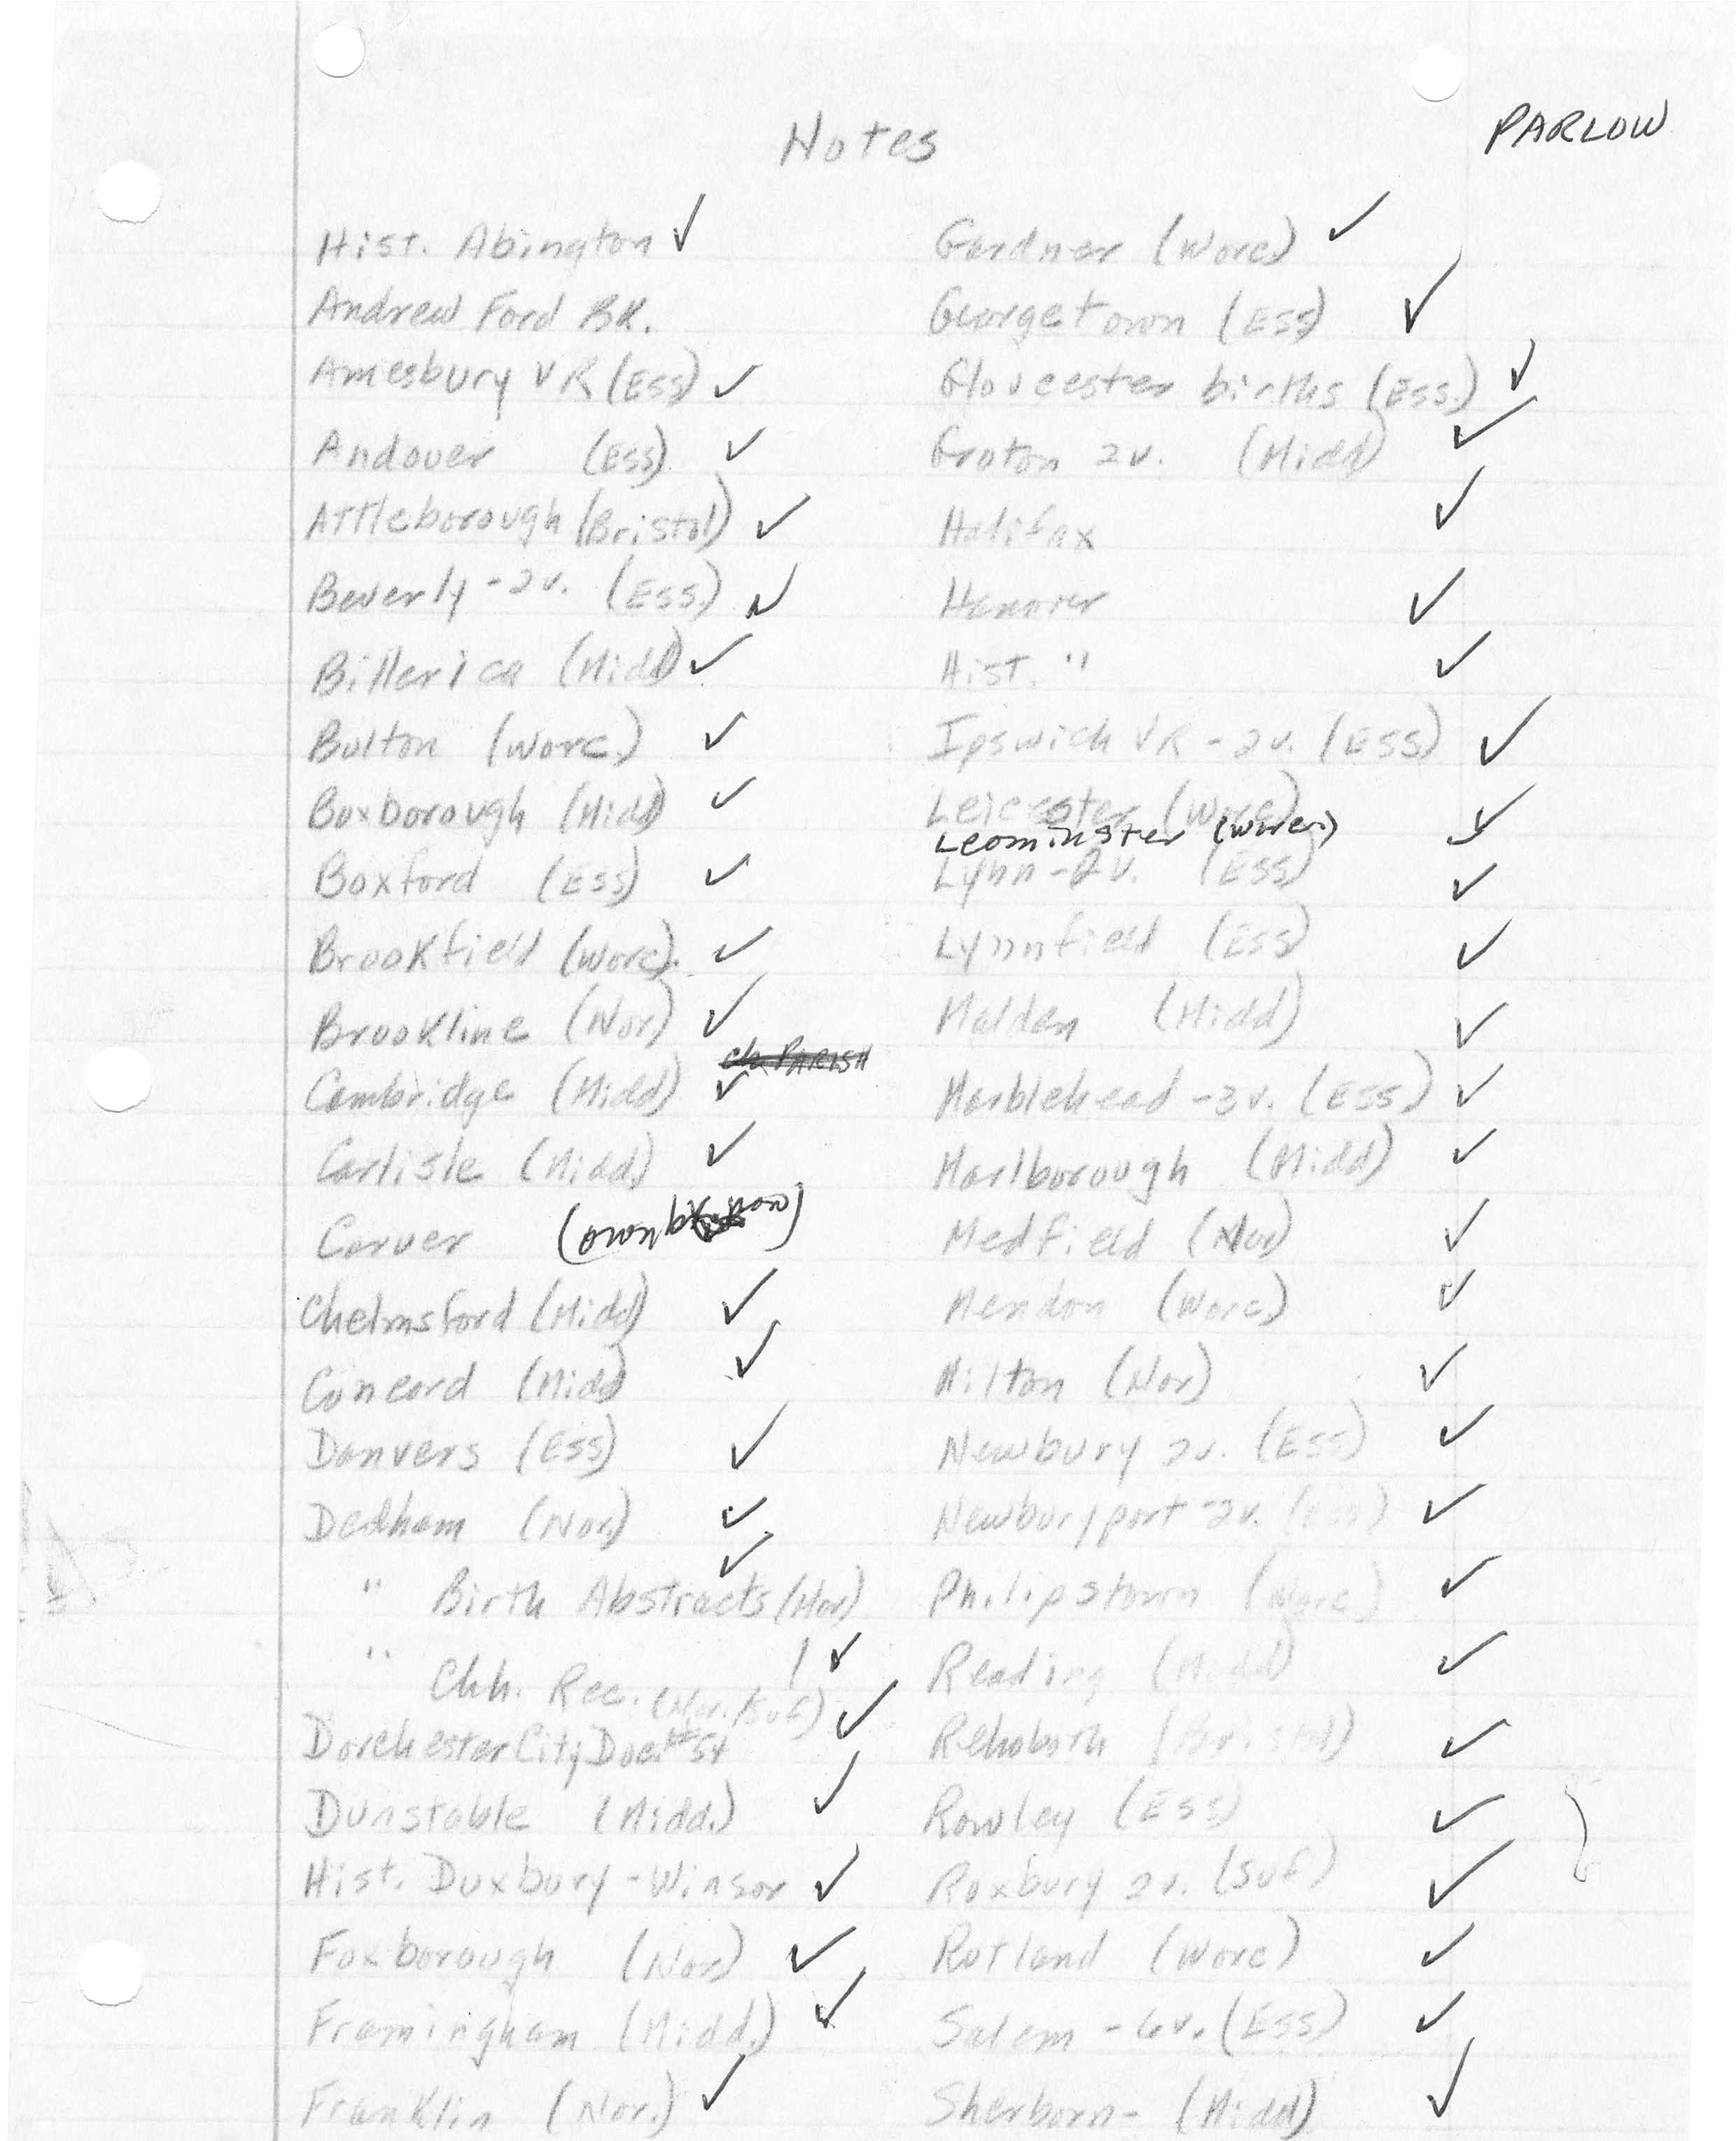 Notes
PARLOW
Hist. Abington ✓
Andrew Ford BK.
Amesbury VR (Ess) ✓
Andover (Ess) ✓
Attleborough (Bristol) ✓
Beverly - 2v. (Ess.) ✓
Billerica (Midd) ✓
Bolton (Worc.) ✓
Boxborough (Midd) ✓
Boxford (Ess) ✓
Brookfield (Worc). ✓
Brookline (Nor) ✓
ch PARISH
Cambridge (Midd) ✓
Carlisle (Midd.) ✓
Carver (own)
Chelmsford (Midd) ✓
Concord (Midd) ✓
Danvers (Ess) ✓
Dedham (Nor) ✓
" Birth Abstracts (Nor) ✓
" Chh. Rec. (Nor./Suf) ✓
Dorchester City Doc. #54 ✓
Dunstable (Midd.) ✓
Hist. Duxbury - Winsor ✓
Foxborough (Nor) ✓
Framingham (Midd.) ✓
Franklin (Nor.) ✓
Gardner (Worc) ✓
Georgetown (Ess) ✓
Gloucester births (Ess.) ✓
Groton 2v. (Midd) ✓
Halifax ✓
Hanover ✓
Hist. " ✓
Ipswich VR - 2v. (Ess) ✓
Leicester (Worc) ✓
Leominster (Worc.) ✓
Lynn - 2v. (Ess) ✓
Lynnfield (Ess) ✓
Malden (Midd) ✓
Marblehead - 3v. (Ess) ✓
Marlborough (Midd) ✓
Medfield (Nor) ✓
Mendon (Worc) ✓
Milton (Nor) ✓
Newbury 2v. (Ess) ✓
Newburyport - 2v. (Ess) ✓
Philipstown (Worc) ✓
Reading (Midd) ✓
Rehoboth (Bristol) ✓
Rowley (Ess) ✓
Roxbury 2v. (Suf) ✓
Rutland (Worc) ✓
Salem - 6v. (Ess) ✓
Sherborn - (Midd) ✓